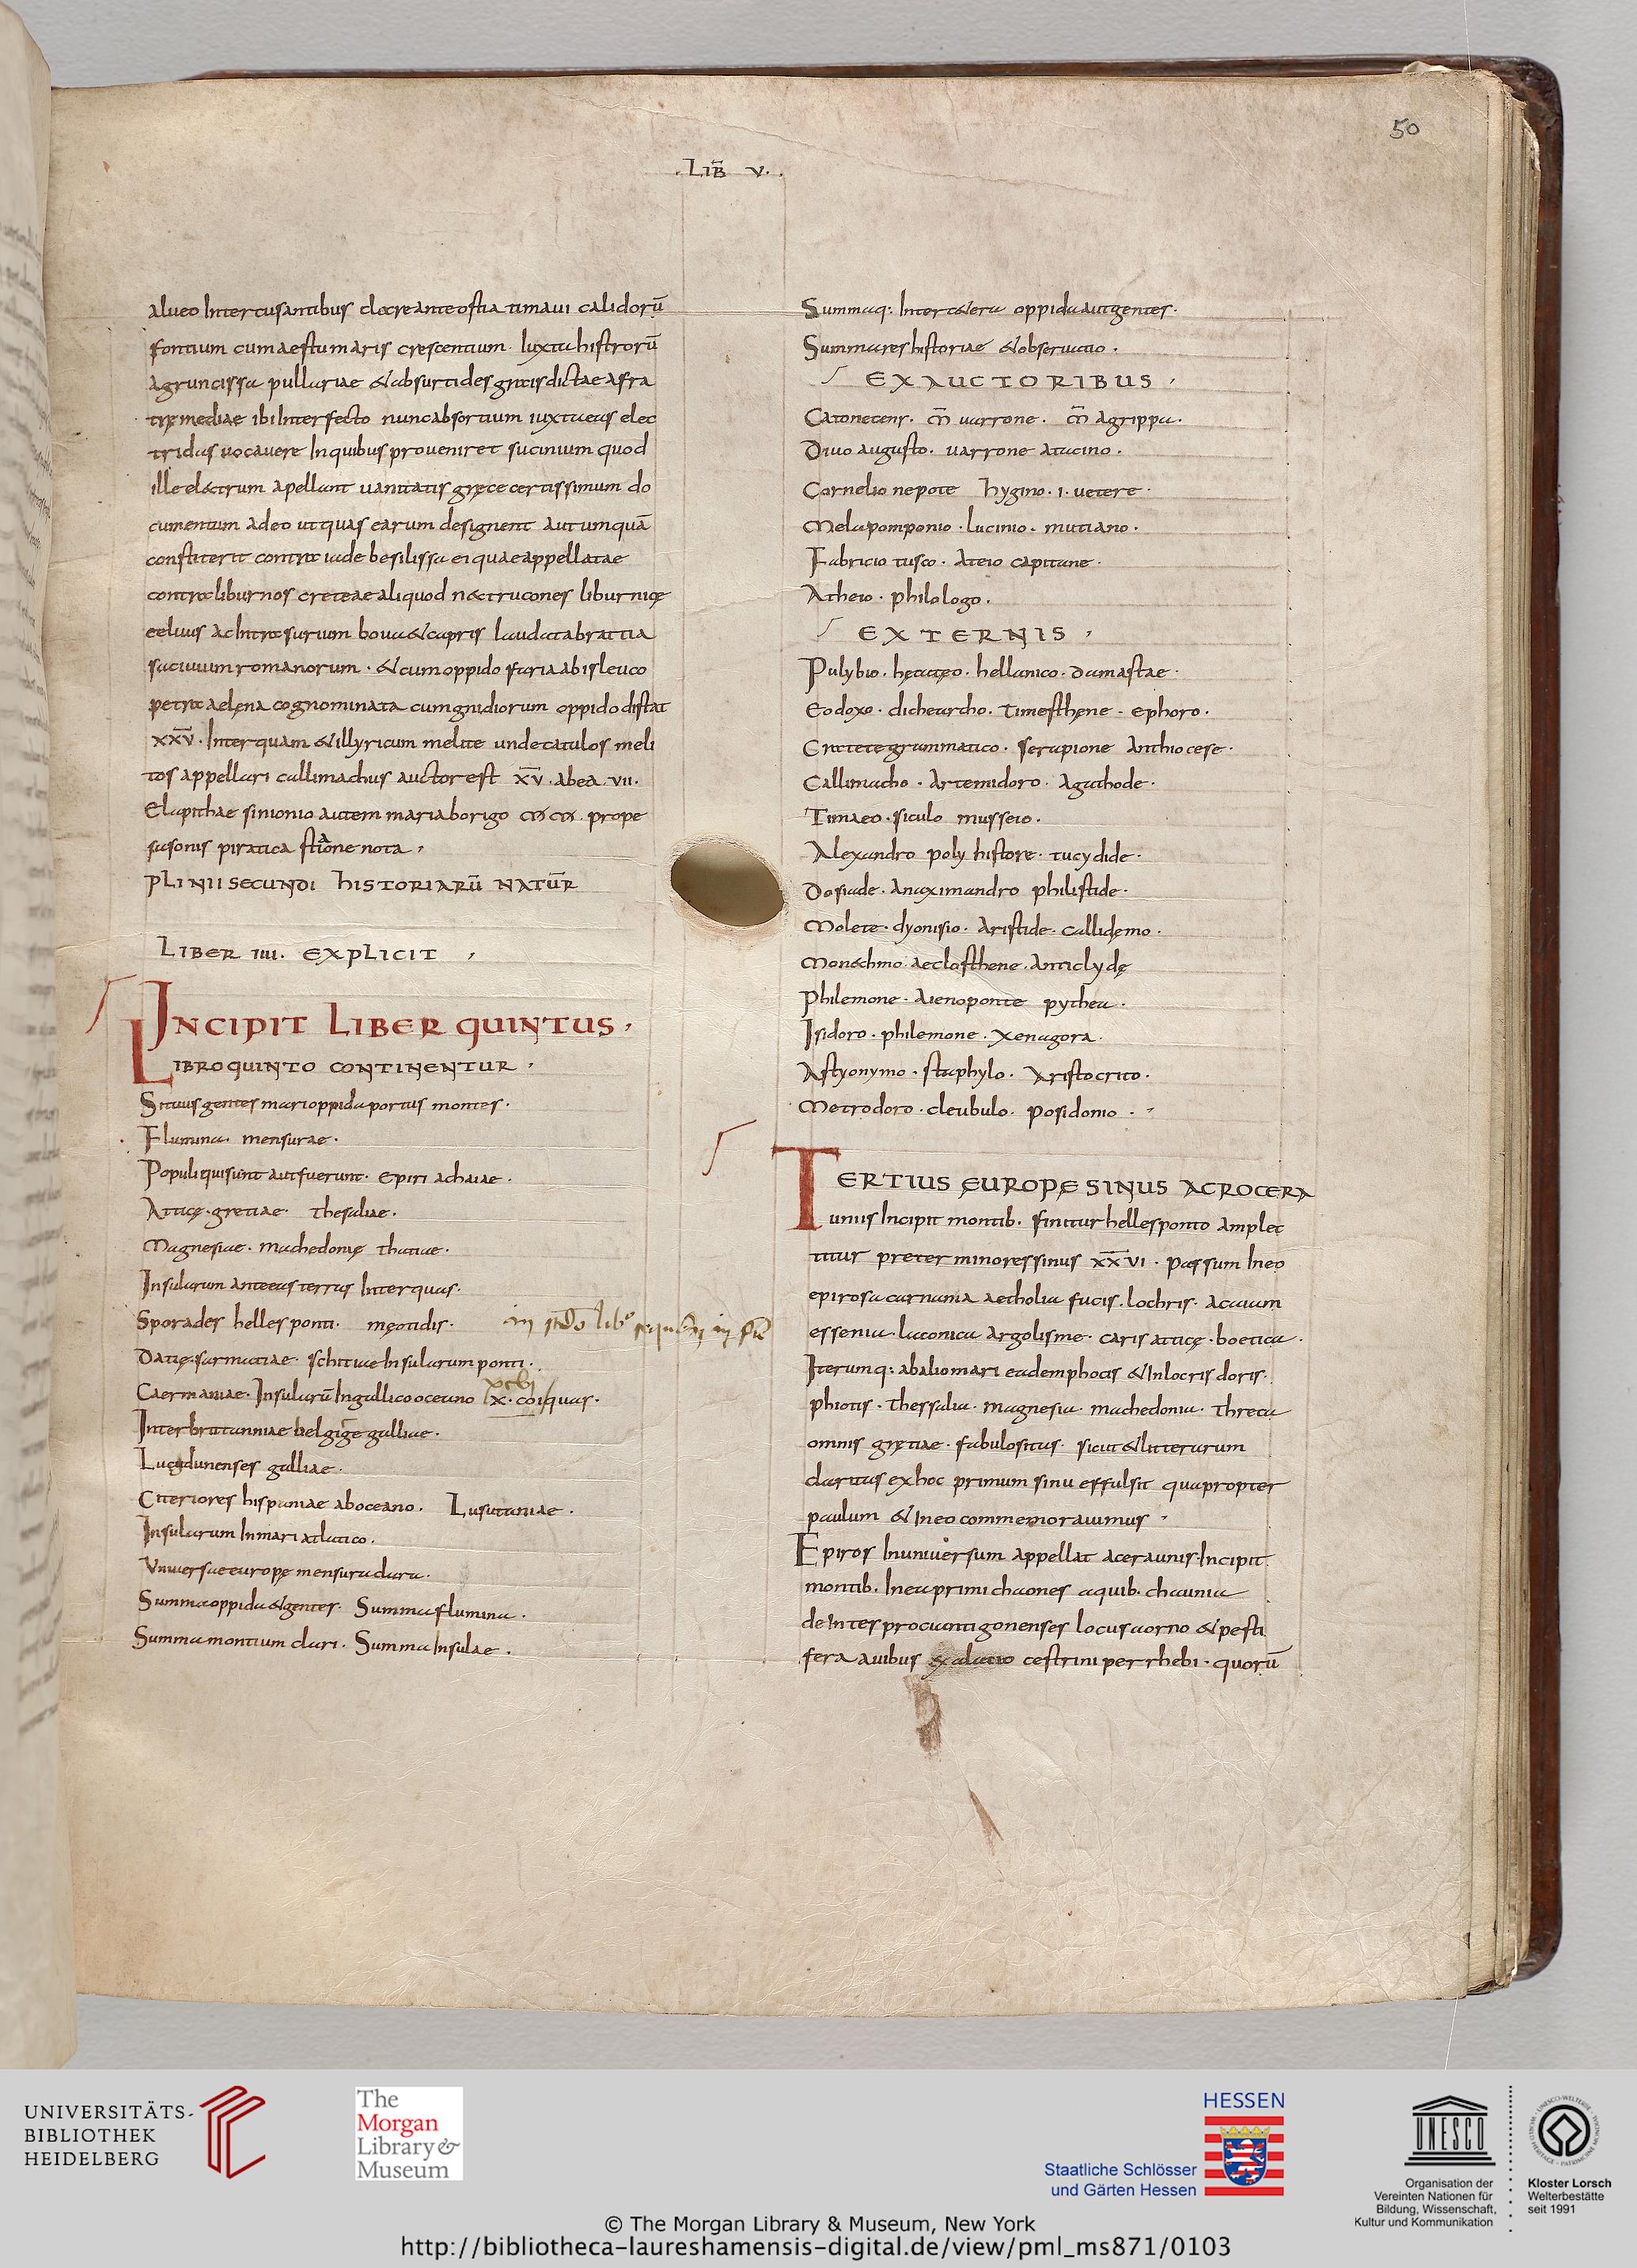 50
. LIB̄ V. .
alueo Intercusantibus docreanteostia timaui calidorū
fontium cumaestumaris crescentium. Iuxtahistrorū
agruncissa pullariae &absurtidesgratisdictaeafra
tręmediae ibiInterfecto nuncabsortium iuxtaeas elec
tridas uocauere Inquibusproueniret sucinium quod
illeel&trum apellant uanitatis gręcecertissimum do
cumentum adeo utquas earum designent autumquā
constiterit contra iade besilissa eiquaeappellatae
contraliburnos creteaealiquod n&trucones liburnicę
eeluus acIntrasurium boua&capris laudatabrattia
sacuuumromanorum . &cumoppido fariaabisleuco
petraaelęna cognominata cumgnidiorum oppidodistat
XXV̄. Interquam &illyricum melite undecatulosmeli
tosappellari callimachus auctorest XV̄. abea. VII.
Elapithae sinionio autem mariaborigo prope
iasonis piratica statione nota ,
PLINII SECUNDI HISTORIARŪ NATŪR
LIBER IIII. EXPLICIT ,
INCIPIT LIBER QUINTUS ,
LIBRO QUINTO CONTINENTUR .
Situusgentes marioppidaportus montes .
Flumina. mensurae .
Populiquisunt autfuerunt. epiri achaiae .
Atticę.gretiae. thesaliae .
Magnesiae. machedonię thatiae .
Insularum anteeasterras Interquas.
Sporades hellesponti. męotidis .
Datię.sarmatiae. schitiaeInsularumponti .
Caermaniae. InsularūIngallicooceano X. coiquas .
Interbratanniae belgigę galliae .
Lugdunenses galliae .
Citeriores hispaniae aboceano . Lusutaniae .
Insularum Inmari atlatico .
Uniuersaeeuropę mensuradara .
Summaoppida&gentes. Summaflumina .
Summamontium clari. SummaInsulae .
Summaq: Intercętera oppidaautgentes .
Summareshistoriae &obseruatio .
EX AUCTORIBUS ,
Catonecens. m̄ uarrone . m̄ agrippa .
Diuo augusto . uarrone atacino .
Cornelio nepote hygino . i . uetere .
Melapomponio . lucinio . mutiano .
Fabricio tusco . ateio capitane .
Atheio . philologo .
EXTERNIS ,
Pulybio . hęcatęo . hellanico . damastae .
Eodoxo . dichearcho . timesthęne . ephoro .
Cratetegrammatico . serapione anthiocese .
Callimacho . artemidoro . agathode .
Timaeo . siculo musseio .
Alexandro poly histore . tucydide .
Dosiade . anaximandro philistide .
Molete . dyonisio . aristide . callidęmo .
Mon&chmo . aeclasthene . anticlydę
Philemone . aienoponte pythea .
Isidoro . philemone . xenagora .
Astyonymo . staphylo . aristocrito .
Metrodoro . cleubulo . posidonio . ,
TERTIUS ęUROPę SINUS ACROCERA
uniis Incipit montib. finiturhellesponto amplec
titur preterminoressinus XX̄VI . passum Ineo
epirosacarnania aetholia focis . lochris . acaium
essenia . laconica argolisme . caris atticę . boetica .
Iterumq: abaliomari eademphocis &Inlocris doris .
phiotis . thessalia . magnesia . machedonia . threca
omnis gretiae . fabulositas . sicut&litterarum
claritas exhoc primum sinu effulsit quapropter
paulum &Ineocommemorauimus ,
Epiros Inuniuersum appellat aceraunisIncipit
montib. Ineaprimichaones aquib. chaunia
deIntesprocuantigonenses locusaorno &pesti
fera auibus exalatio cestriniperrhebi . quorū
UNIVERSITÄTS-
BIBLIOTHEK
HEIDELBERG
The
Morgan
Library &
Museum
HESSEN
Staatliche Schlösser
und Gärten Hessen
UNESCO
Organisation der
Vereinten Nationen für
Bildung, Wissenschaft,
Kultur und Kommunikation
Kloster Lorsch
Welterbestätte
seit 1991
© The Morgan Library & Museum, New York
http://bibliotheca-laureshamensis-digital.de/view/pml_ms871/0103